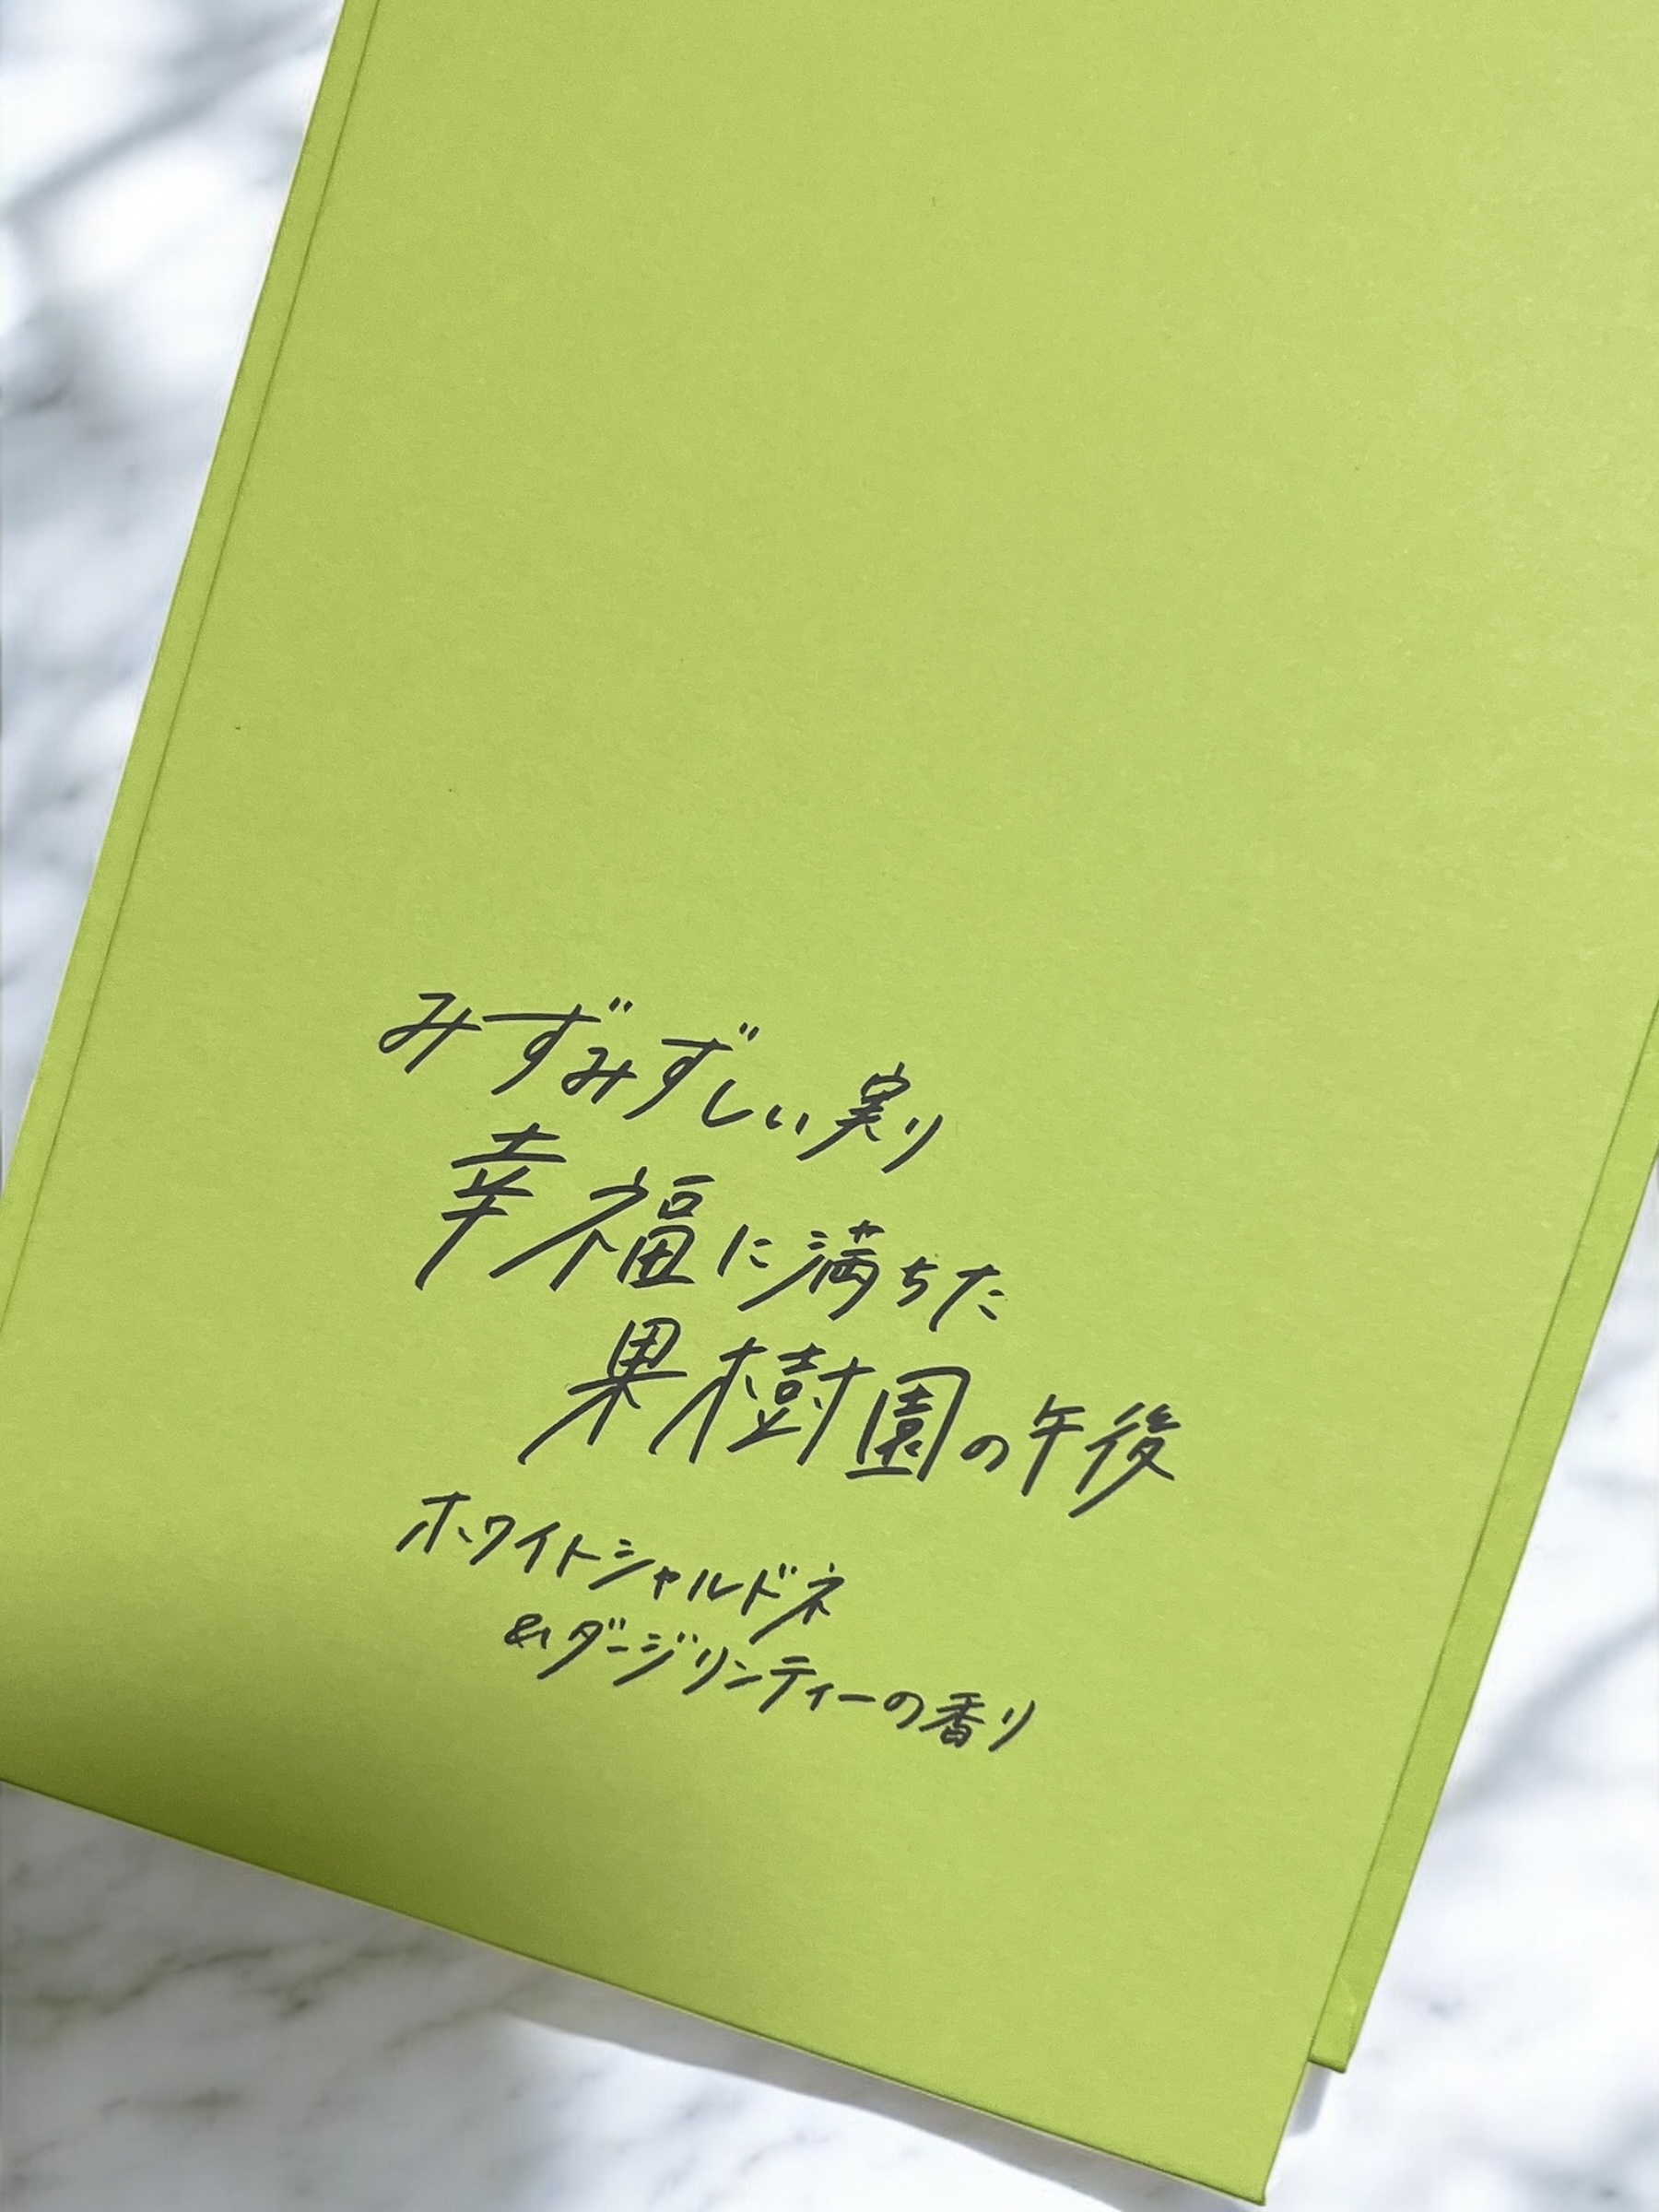 みずみずしい実り
幸福に満ちた
果樹園の午後
ホワイトシャルドネ
&ダージリンティーの香り